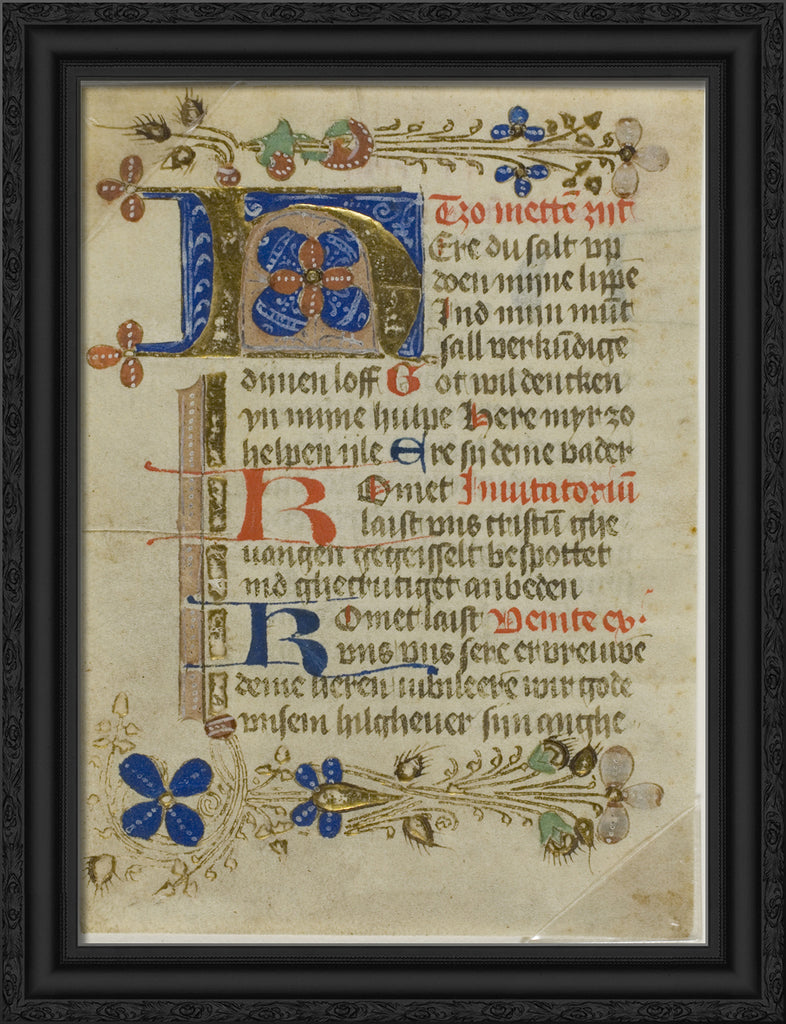 Tzo mettē zijt
HEre du salt vp
doen mijne lippe
Ind mijn mūt
sall verkūdigē
dijnen loff Got wil dencken
yn mijne hulpe Here myr zo
helpen ijle Ere sij deme vader
Komet Inuitatoriū
laist vns cristū ghe
uangen gegeisselt bespottet
ind ghecrutiget anbeden
Komet laist Venite ex.
vns vns sere ervreuwē
deme heren iubileere wir gode
vnsem hilgheuer sijn anghe